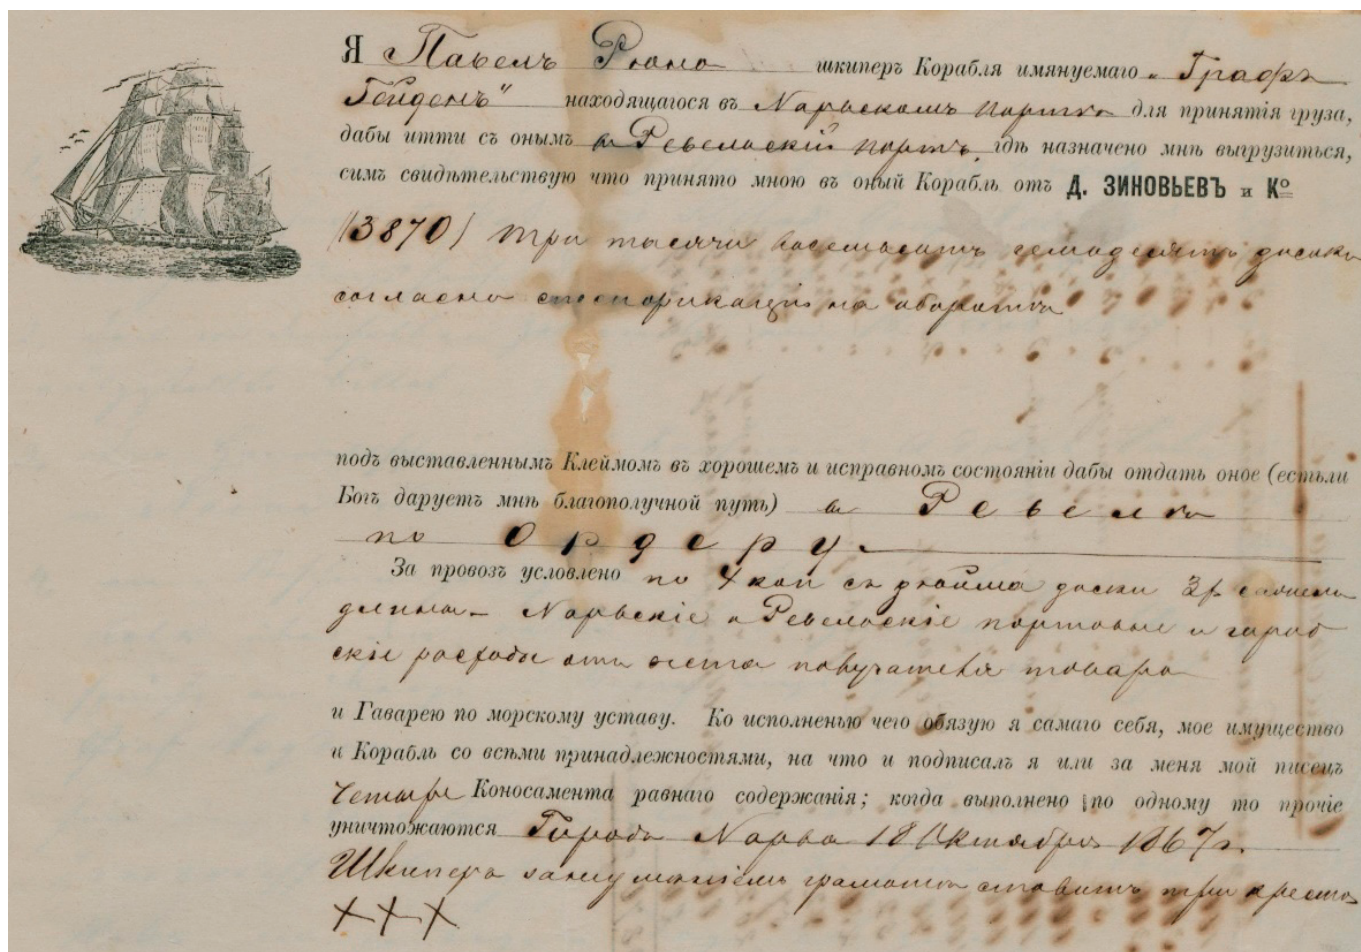 Я Павелъ Рюна шкиперъ Корабля имянуемаго „Графъ
Гейденъ" находящагося въ Нарвскомъ портѣ для принятія груза,
дабы итти съ онымъ в Ревельскій портъ, гдѣ назначено мнѣ выгрузиться,
симъ свидѣтельствую что принято мною въ оный Корабль отъ Д. ЗИНОВЬЕВЪ и Кº
(3870) три тысячи восемьсотъ семьдесятъ досокъ
согласно спесификаціи на оборотѣ
подъ выставленнымъ Клеймомъ въ хорошемъ и исправномъ состояніи дабы отдать оное (естьли
Богъ даруетъ мнѣ благополучной путь) в Ревелѣ
по Ордеру.
За провозъ условлено по 4 коп съ дюйма доски
длины - Нарвскіе и Ревельскіе портовые и город
скіе расходы отъ счета получателя товара
и Гаварею по морскому уставу. Ко исполненью чего обязую я самаго себя, мое имущество
и Корабль со всѣми принадлежностями, на что и подписалъ я или за меня мой писецъ
Четыре Коносамента равнаго содержанія; когда выполнено по одному то прочіе
уничтожаются Городъ Нарва 18 Октября 1867 г.
Шкиперъ за неуменіемъ грамоты ставитъ три креста
+++